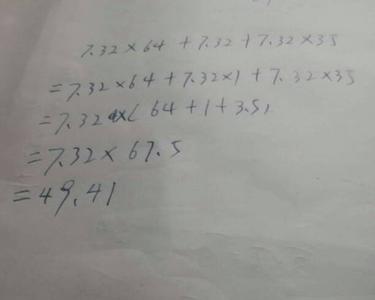 7.32×64+7.32+7.32×35
=7.32×64+7.32×1+7.32×35
=7.32×(64+1+3.5)
=7.32×67.5
=49.41